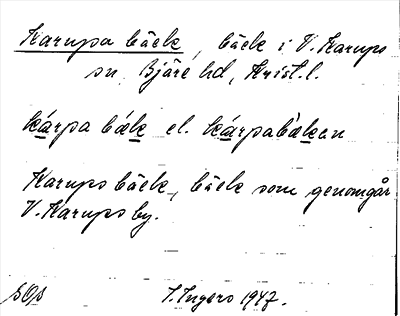 Karupa bäck, bäck i V. Karups
sn, Bjäre hd, Krist. l.
kárpa bæk el. kárpabækan
Karups bäck, bäck som genomgår
V. Karups by.
SOs I. Ingers 1947.